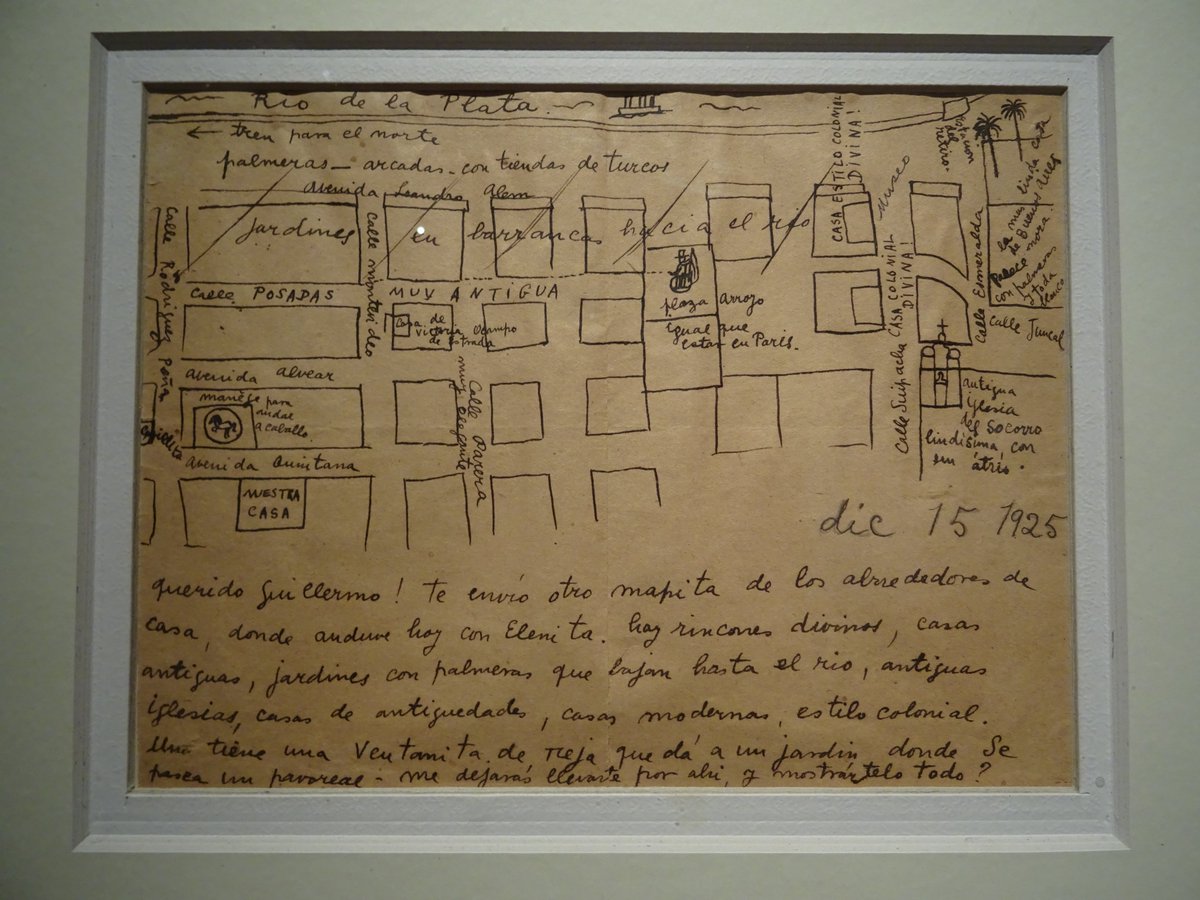 Río de la Plata
← tren para el norte
palmeras - arcadas - con tiendas de turcos
Avenida Leandro Alem
Jardines en barrancas hacia el río
Calle Rodríguez Peña
Calle montevideo
Calle POSADAS MUY ANTIGUA
Casa de
Victoria Ocampo
de Estrada
plaza Arroyo
igual que
estar en París.
CASA ESTILO COLONIAL
DIVINA!
Museo
CASA COLONIAL
DIVINA!
Calle Suipacha
Estación
del
retiro
Calle Esmeralda
la más linda casa
de Buenos Aires
con palmeras
y toda
Calle Juncal
antigua
iglesia
del SOCORRO
lindísima, con
em átrio.
Avenida Alvear
manège para
andar
a caballo.
Avenida Quintana
NUESTRA
CASA
Calle
muy elegante
dic 15 1925
querido Guillermo! Te envío otro mapita de los alrrededores de
casa, donde anduve hoy con Elenita. hay rincones divinos, casas
antiguas, jardines con palmeras que bajan hasta el río, antiguas
iglesias, casas de antiguedades, casas modernas, estilo colonial.
Una tiene una Ventanita de reja que dá a un jardin donde Se
pasea un pavoreal - me dejarás llevarte por ahi, y mostrártelo todo?